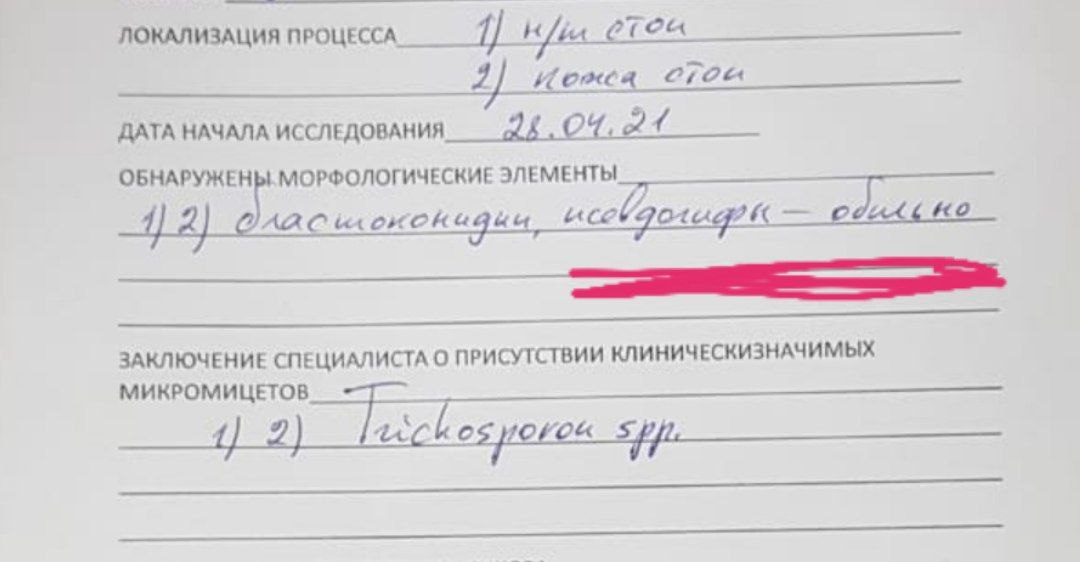 ЛОКАЛИЗАЦИЯ ПРОЦЕССА 1) н/ш стоп
2) кожа стоп
ДАТА НАЧАЛА ИССЛЕДОВАНИЯ 28.04.21
ОБНАРУЖЕНЫ МОРФОЛОГИЧЕСКИЕ ЭЛЕМЕНТЫ
1) 2) бластоконидии, псевдогифы – обильно
ЗАКЛЮЧЕНИЕ СПЕЦИАЛИСТА О ПРИСУТСТВИИ КЛИНИЧЕСКИЗНАЧИМЫХ
МИКРОМИЦЕТОВ
1) 2) Trichosporon spp.